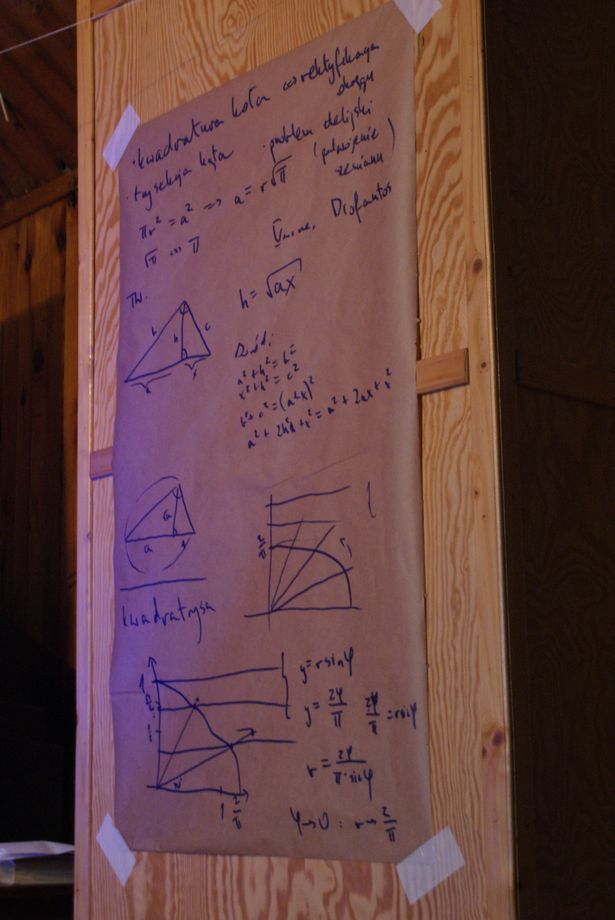 · kwadratura koła ⇔ rektyfikacja okręgu
· trysekcja kąta · problem delijski (podwojenie sześcianu)
πr² = a² => a = r√π
√π <=> π
Diofantos
Tw.
h = √ax
b h c
a x
Dowód:
a² + h² = b²
x² + h² = c²
b² + c² = (a+x)²
a² + 2h² + x² = a² + 2ax + x²
a
kwadratrysa
2/π
1
y = r sin φ
y = 2φ/π 2φ/π = r sin φ
r = 2φ/π·sin φ
1 2/π
φ → 0 : r → 2/π